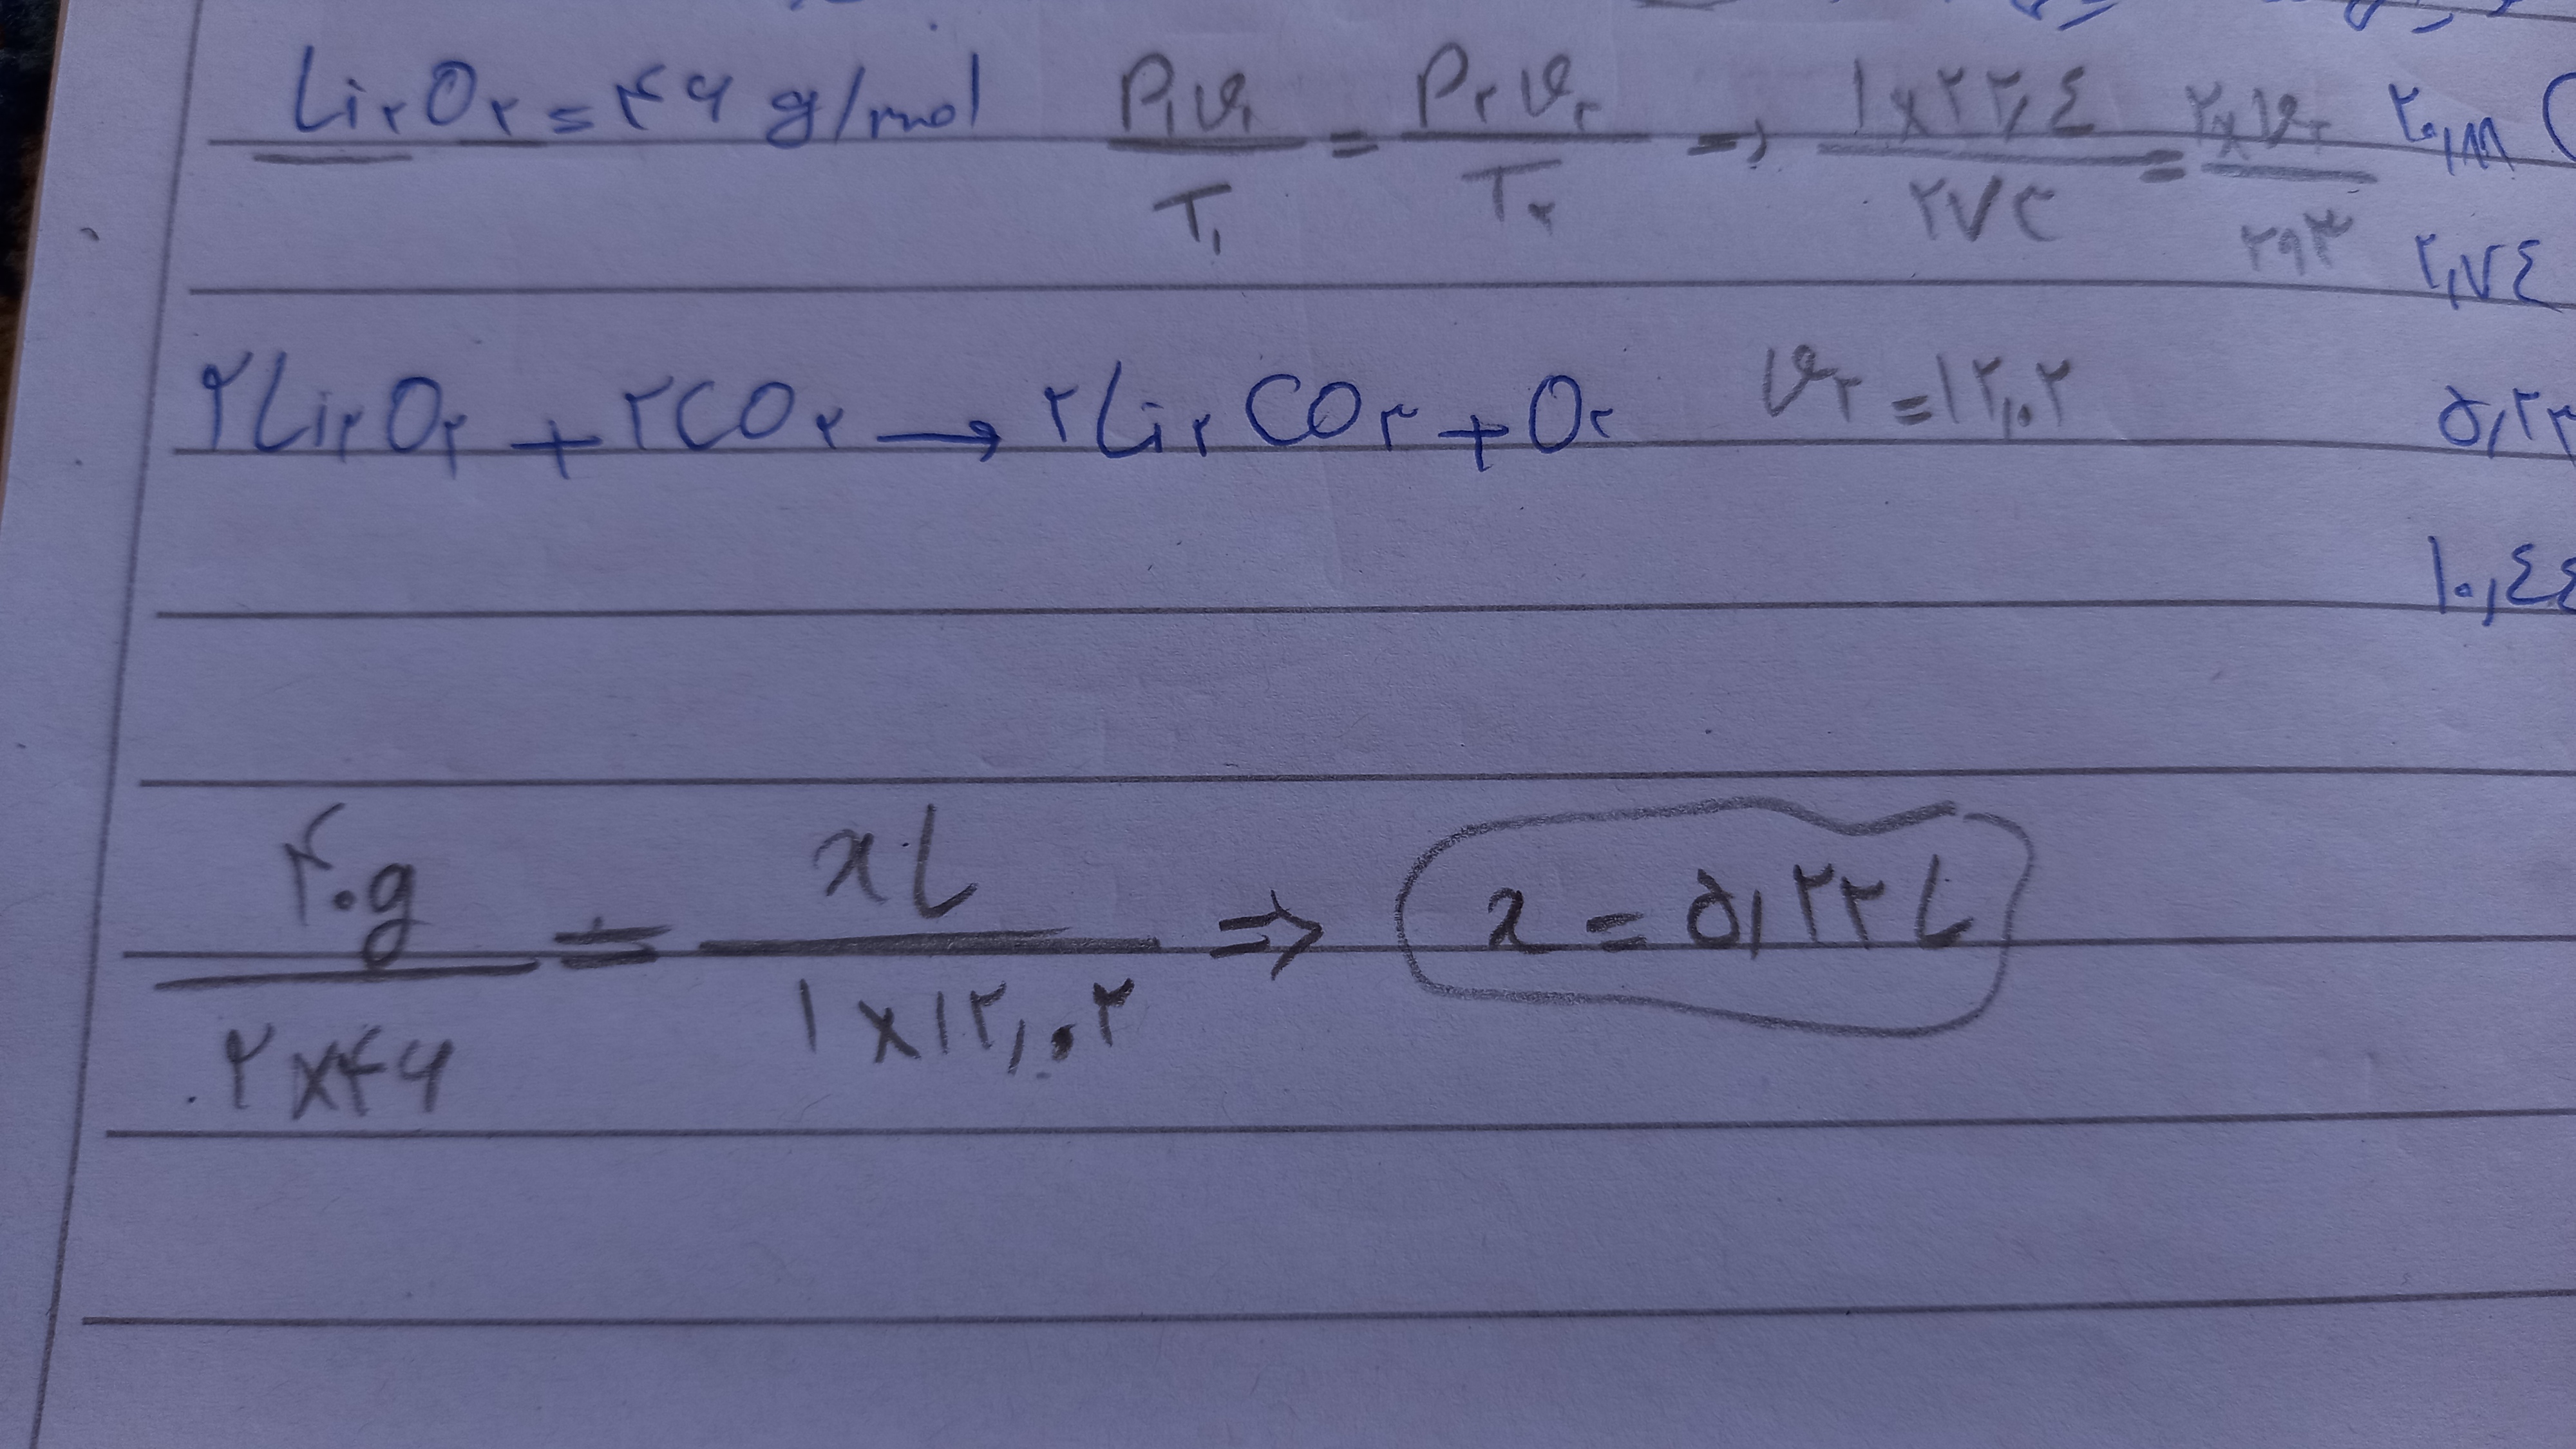 Li۲O۲ = ۴۶ g/mol P۱V۱/T۱ = P۲V۲/T۲ ⇒ ۱×۲۲,٤/۲۷۳ = ۲×V۲/۲۹۳ ۲۰,۸۸
۲,۷٤
۲Li۲O۲ + ۲CO۲ → ۲Li۲CO۳ + O۲ V۲ = ۱۲,۰۲ ۵,۲۲
۱۰,٤٤
۴۰g/۲×۴۶ = xL/۱×۱۲,۰۲ ⇒ x = ۵,۲۲ L